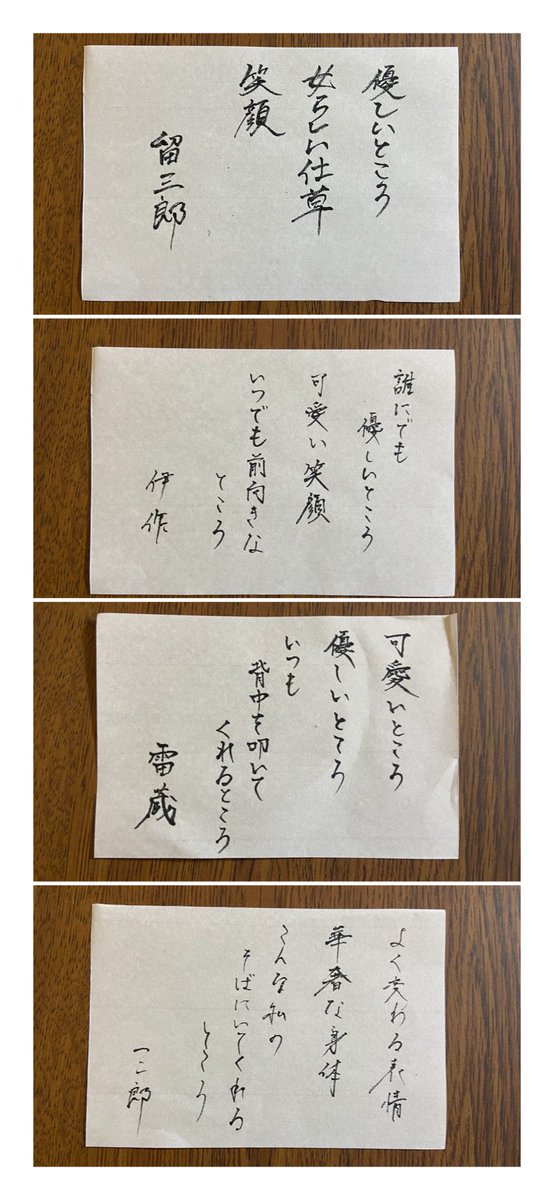 優しいところ
女らしい仕草
笑顔
留三郎
誰にでも
優しいところ
可愛い笑顔
いつでも前向きな
ところ
伊作
可愛いところ
優しいところ
いつも
背中を叩いて
くれるところ
雷蔵
よく変わる表情
華奢な身体
こんな私の
そばにいてくれる
ところ
一二郎